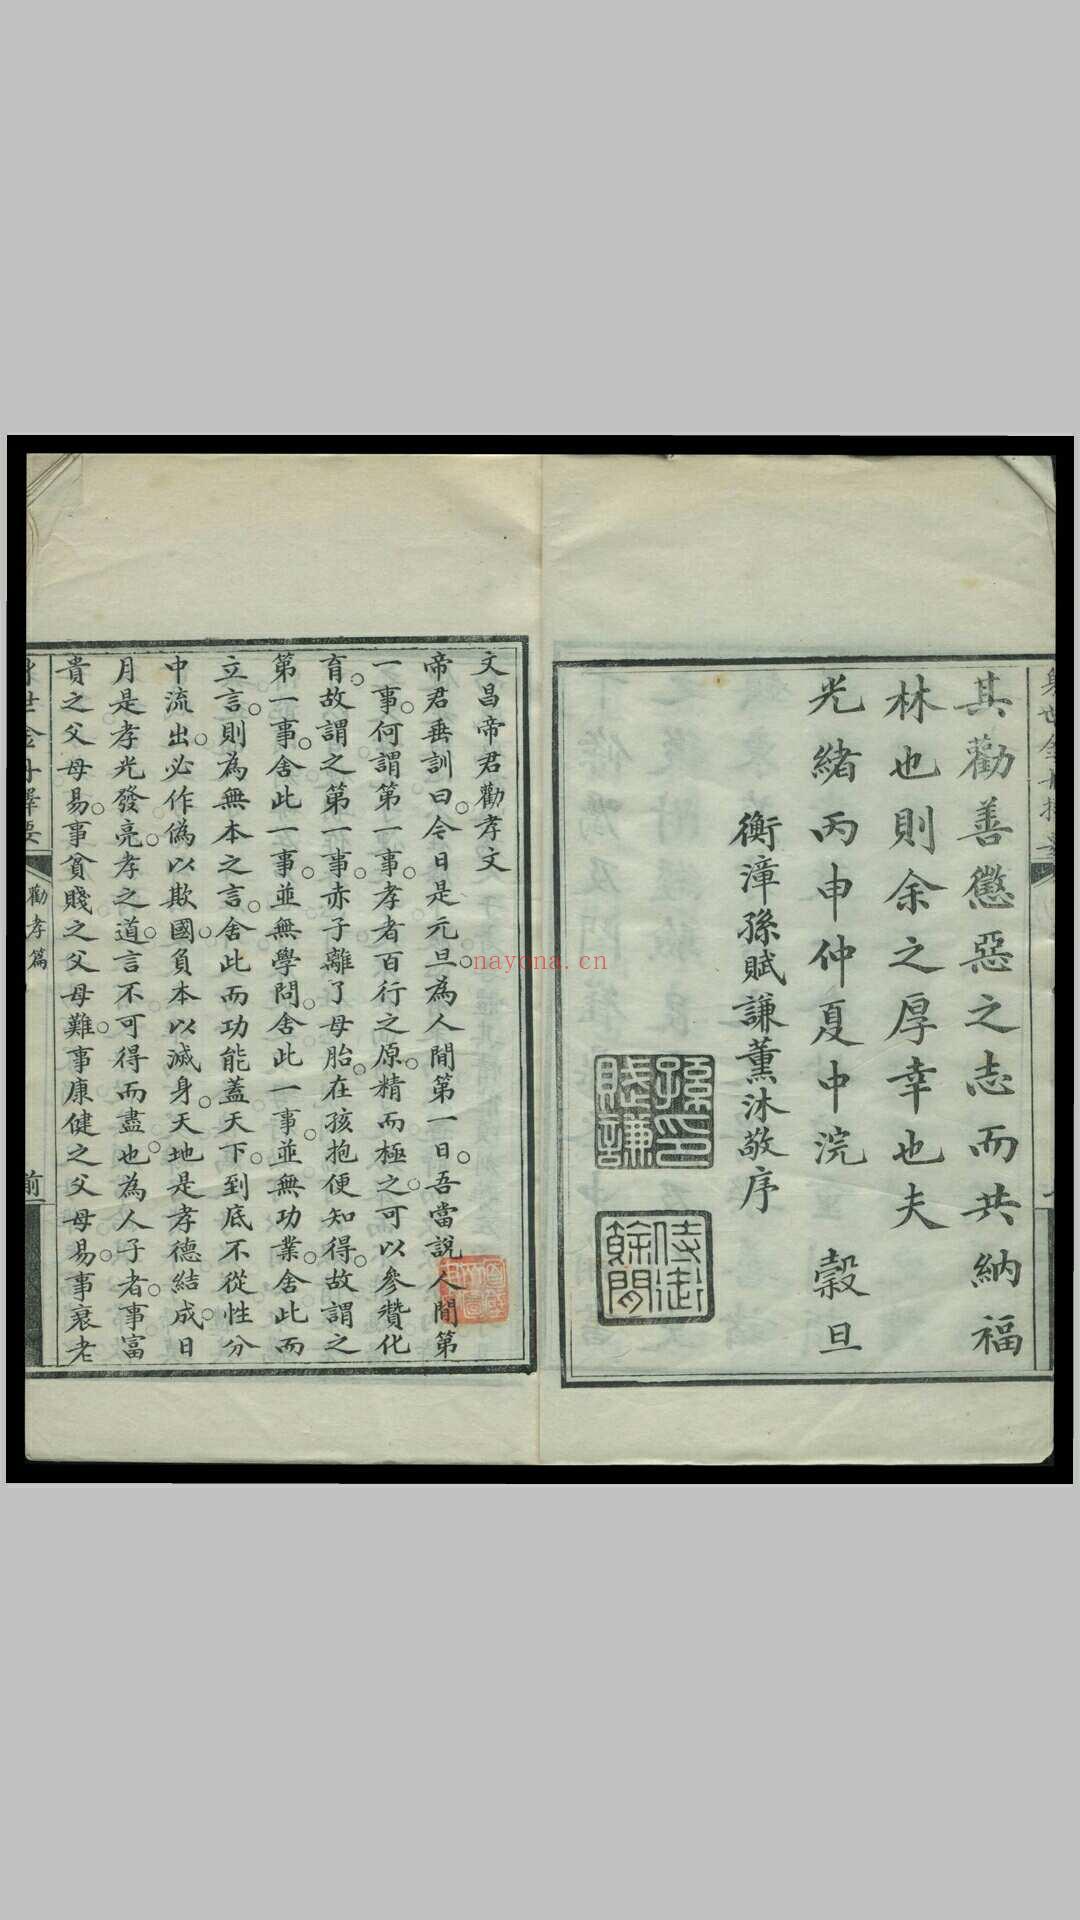 其勸善懲惡之志而共納福
林也則余之厚幸也夫
光緒丙申仲夏中浣 穀旦
衡漳孫賦謙薰沐敬序
文昌帝君勸孝文
帝君垂訓曰令日是元旦為人間第一日吾當說人間第
一事何謂第一事孝者百行之原精而極之可以參贊化
育故謂之第一事赤子離了母胎在孩抱便知得故謂之
第一事舍此一事並無學問舍此一事並無功業舍此而
立言則為無本之言舍此而功能蓋天下到底不從性分
中流出必作偽以欺國負本以滅身天地是孝德結成日
月是孝光發亮孝之道言不可得而盡也為人子者事富
貴之父母易事貧賤之父母難事康健之父母易事衰老
勸孝篇
前
nayona.cn